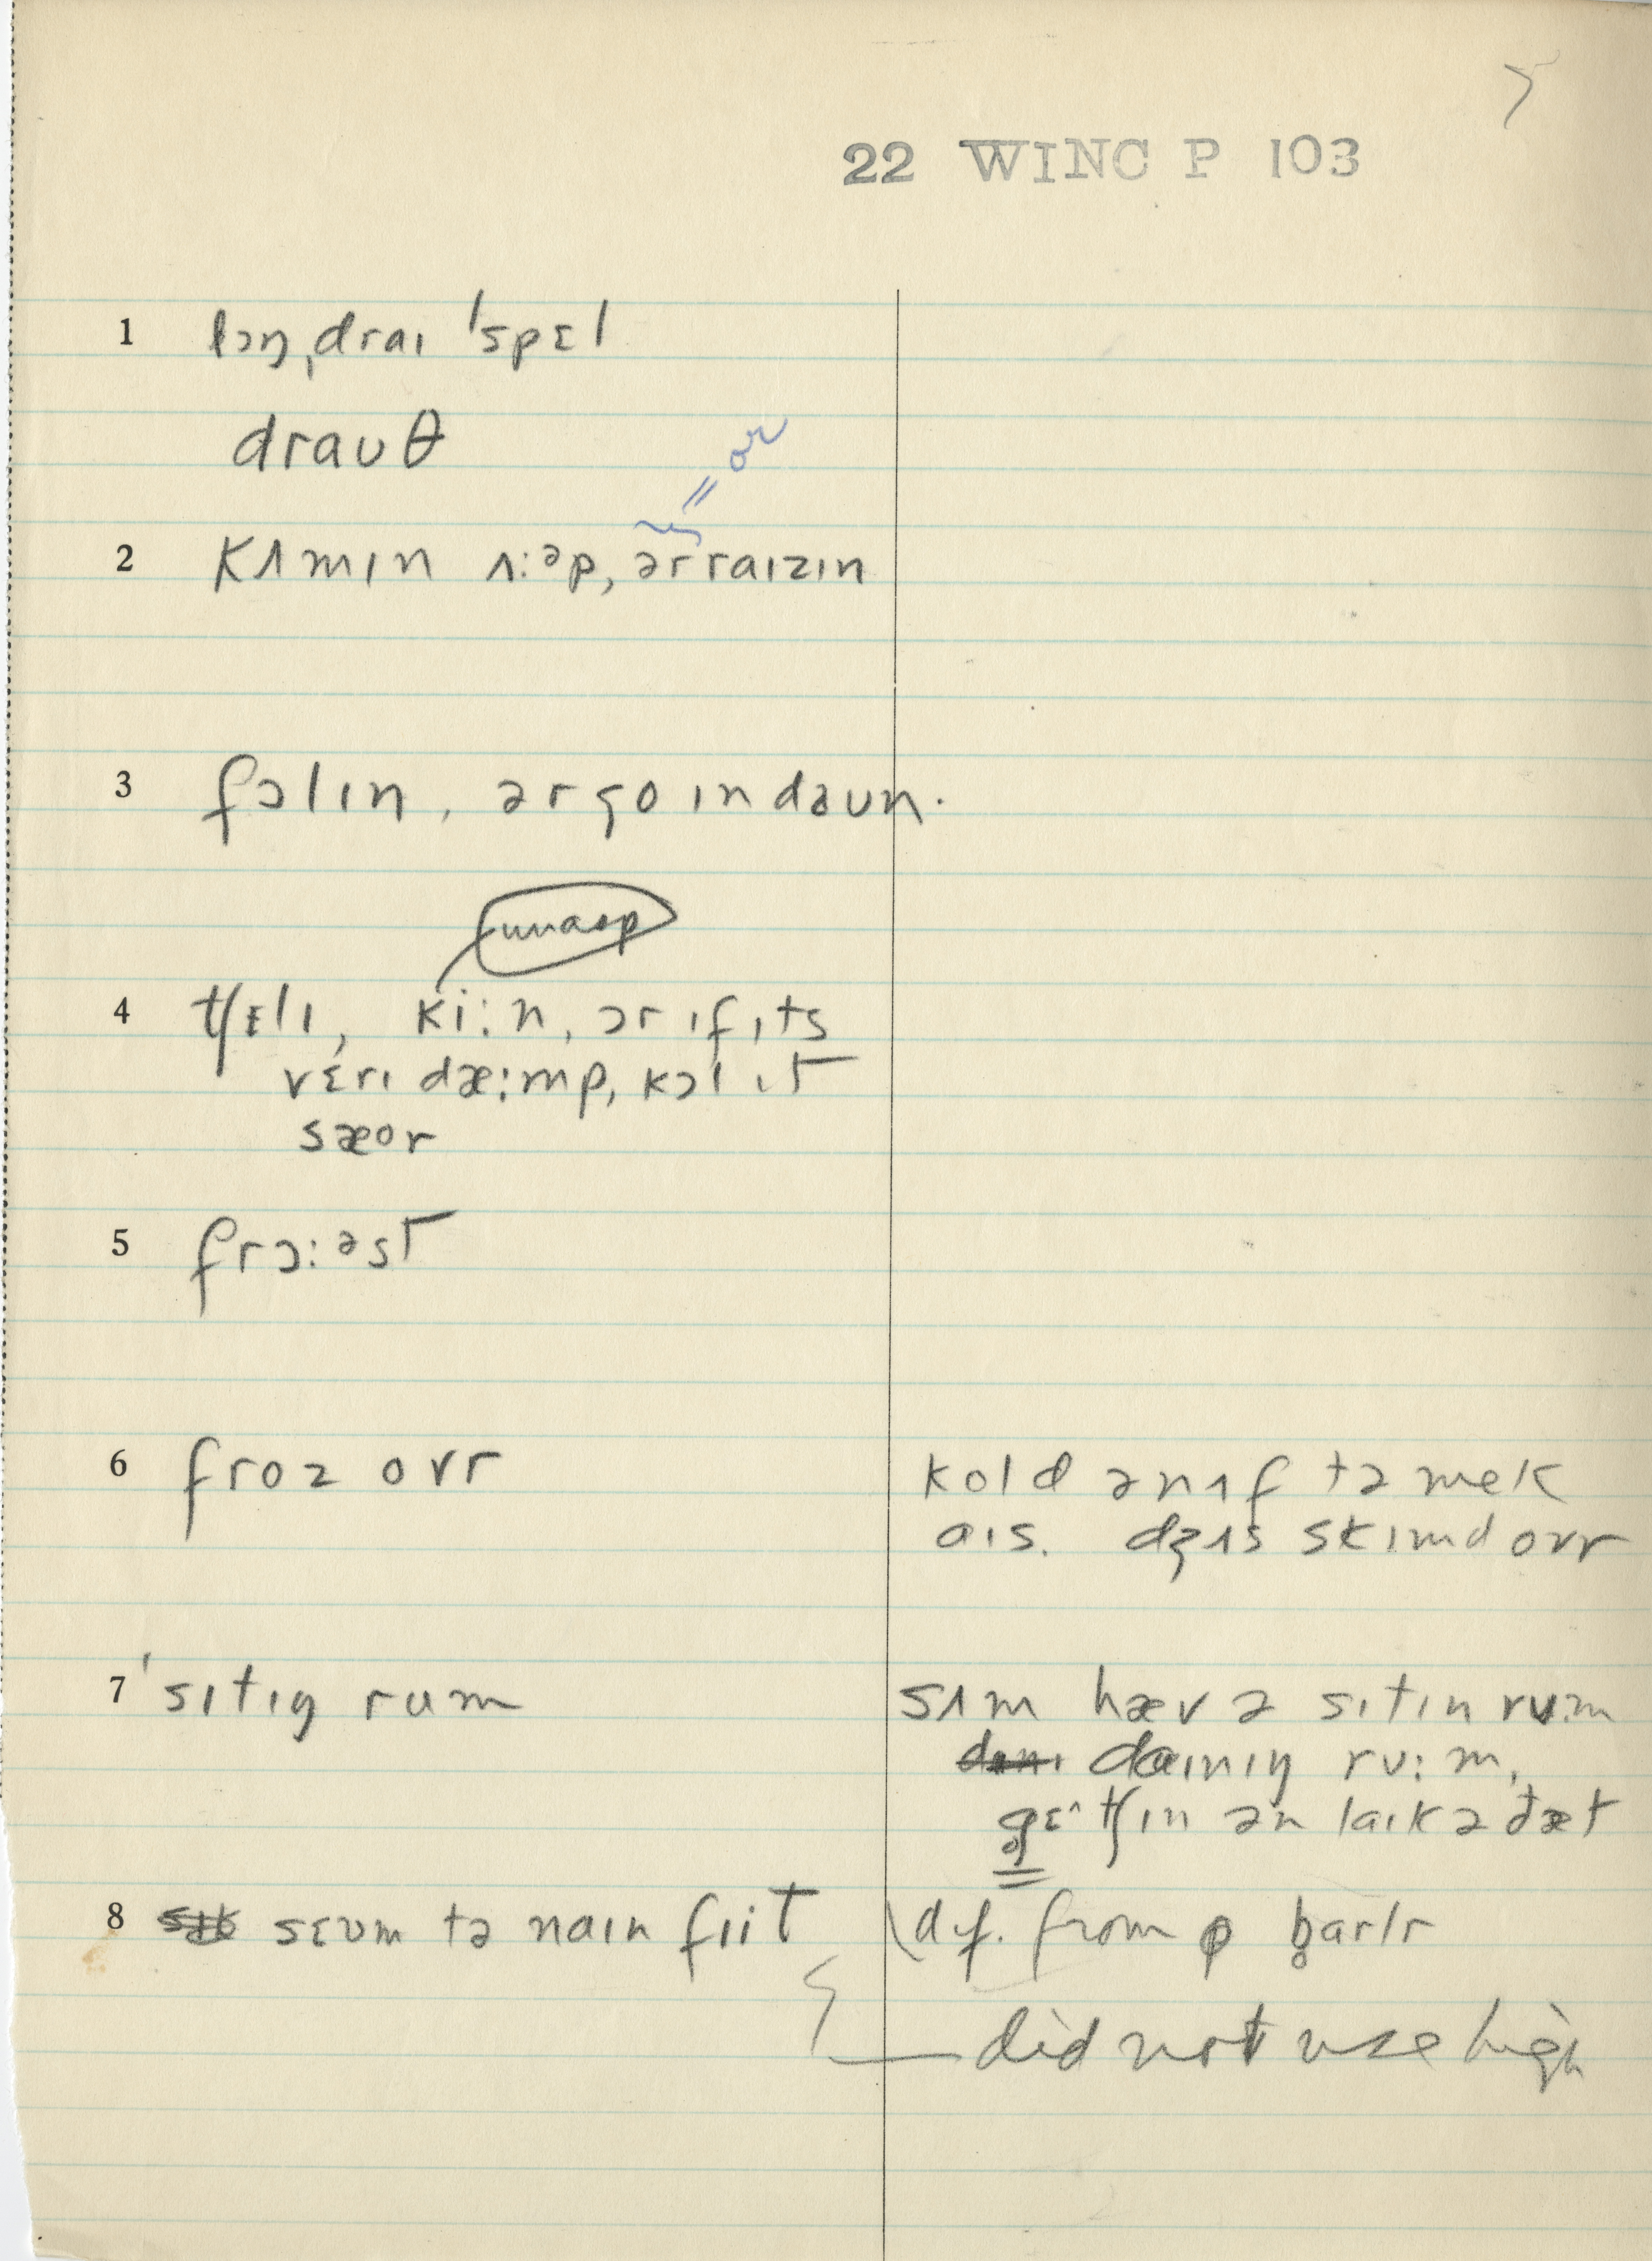 7
22 WINC P 103
1 lɔŋˌdraɪ ˈspɛl
drauθ
= or
2 kʌmɪn ʌ:əp, ər raɪzɪn
3 fɔlɪn, ər goɪn daun.
unasp
4 tʃɛlɪ, ki:n, ər ɪf ɪts
vɛrɪ dæ:mp, kɔl ɪt
sæor
5 frɔ:əst
6 froz ovr
kold ənʌf tə mek
aɪs. dʒʌs skɪmd ovr
7 ˈsɪtɪŋ rum
sʌm hæv ə sɪtɪn ru:m
daɪnɪŋ ru:m,
kɛˆtʃɪn ən laɪk ə ðæt
8 sɛvm tə naɪn fiit
dif. from φ b̥arlr
did not use high